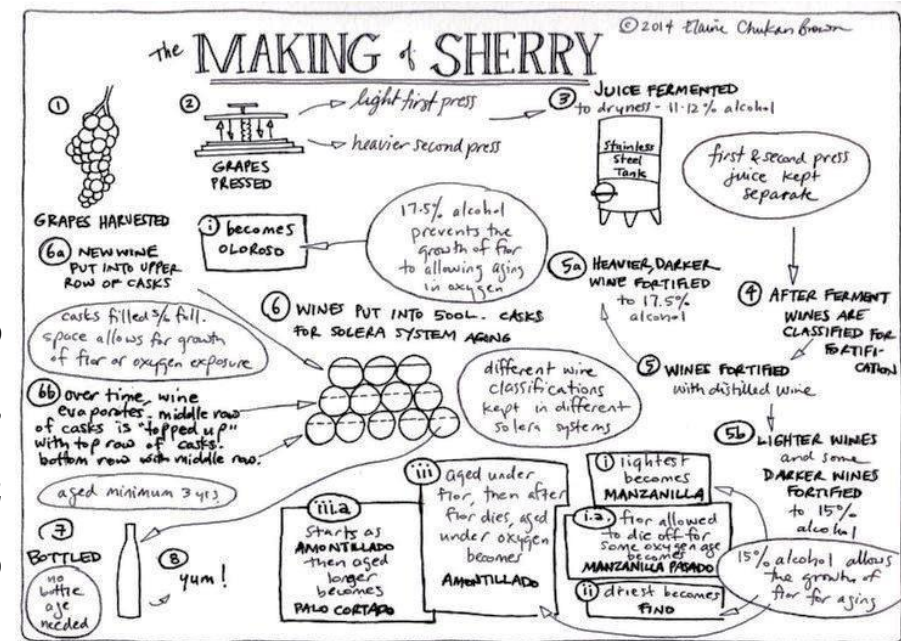 © 2014 Elaine Chukan Brown
The MAKING of SHERRY
①
GRAPES HARVESTED
②
GRAPES
PRESSED
light first press
heavier second press
③ JUICE FERMENTED
to dryness - 11-12% alcohol
Stainless
Steel
Tank
first & second press
juice kept
separate
④ AFTER FERMENT
WINES ARE
CLASSIFIED FOR
FORTIFI-
CATION
⑤ WINES FORTIFIED
with distilled wine
5a HEAVIER, DARKER
WINE FORTIFIED
to 17.5%
alcohol
17.5% alcohol
prevents the
growth of flor
to allowing aging
in oxygen
i becomes
OLOROSO
5b LIGHTER WINES
and some
DARKER WINES
FORTIFIED
to 15%
alcohol
15% alcohol allows
the growth of
flor for aging
i lightest
becomes
MANZANILLA
i.a. flor allowed
to die off for
some oxygen age
becomes
MANZANILLA PASADO
ii driest becomes
FINO
iii aged under
flor, then after
flor dies, aged
under oxygen
becomes
AMONTILLADO
iii.a
Starts as
AMONTILLADO
then aged
longer
becomes
PALO CORTADO
⑥ WINES PUT INTO 500L. CASKS
FOR SOLERA SYSTEM AGING
different wine
classifications
kept in different
solera systems
6a NEW WINE
PUT INTO UPPER
ROW OF CASKS
casks filled full.
space allows for growth
of flor or oxygen exposure
6b over time, wine
evaporates. middle row
of casks is "topped up"
with top row of casks.
bottom row with middle row.
aged minimum 3 yrs
⑦
BOTTLED
no
bottle
age
needed
⑧
yum!